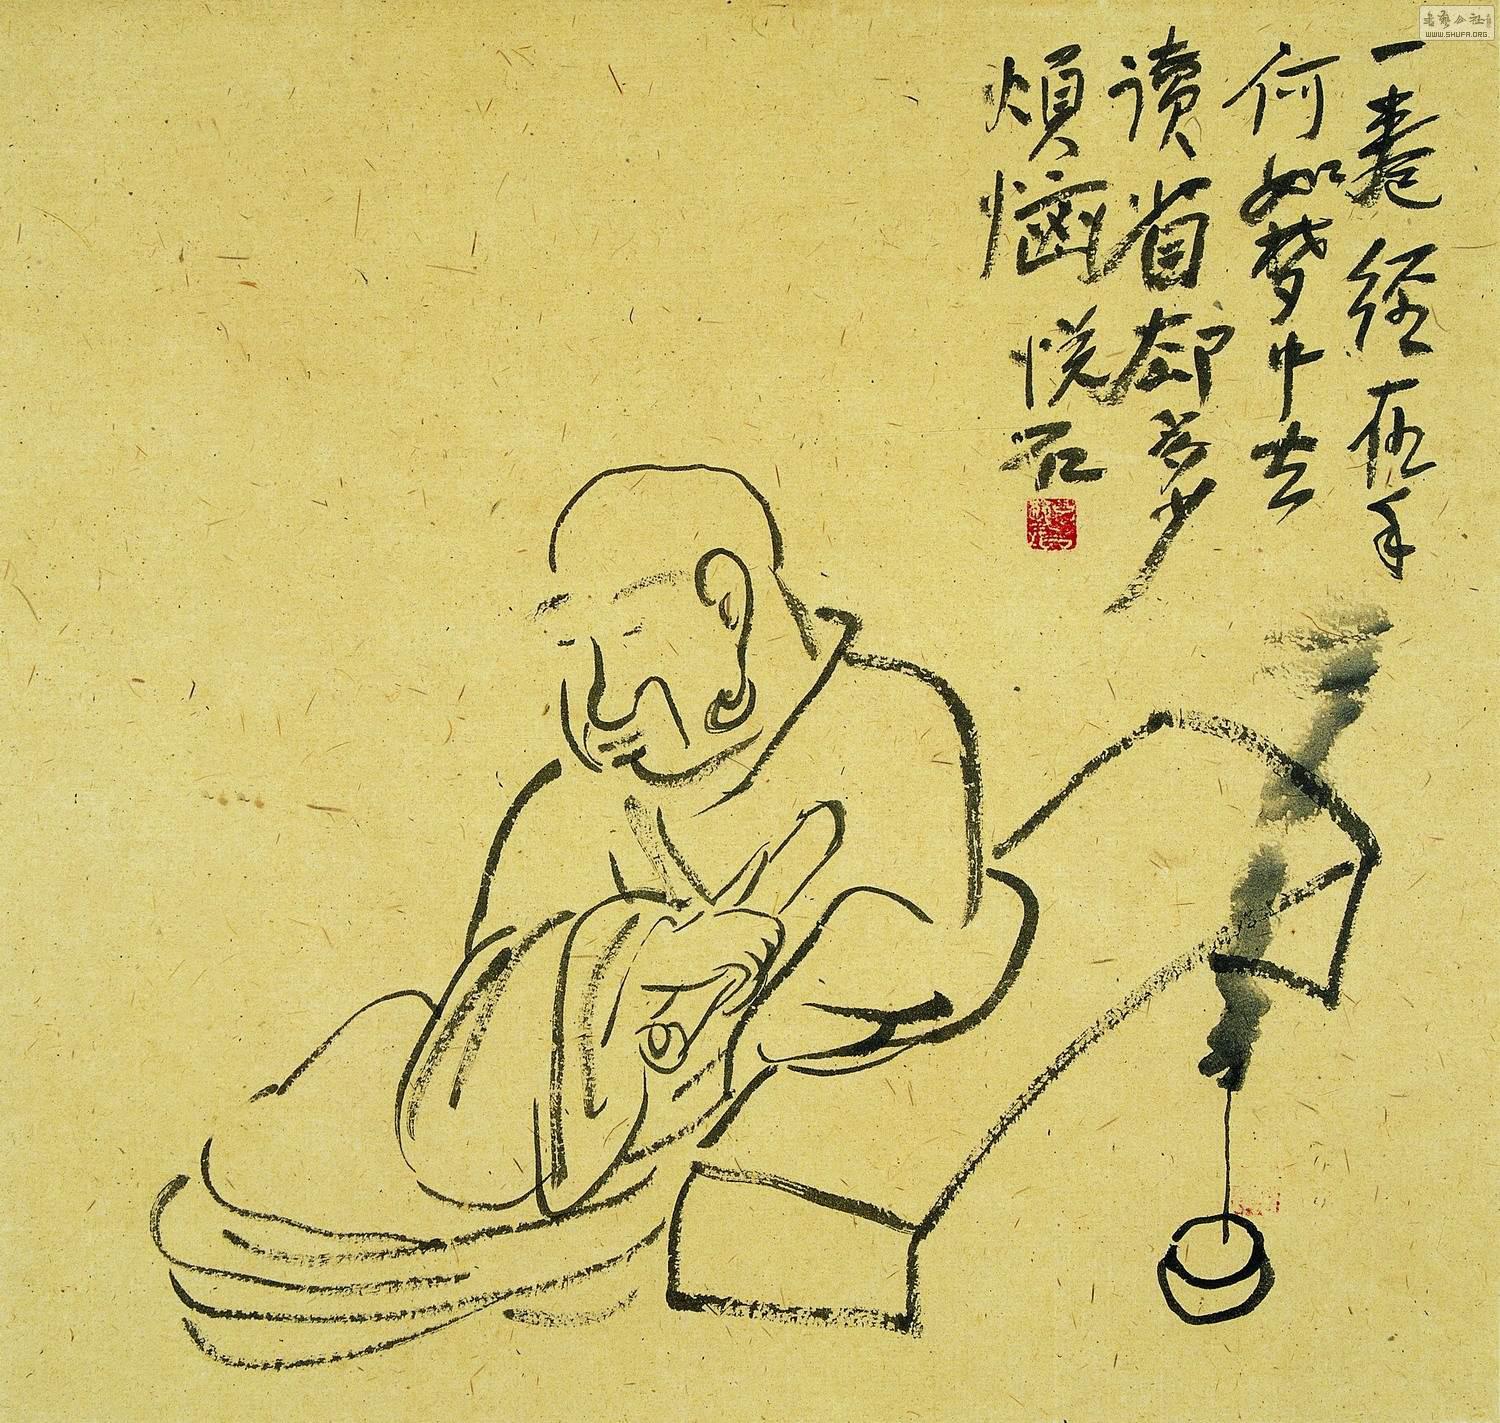 一卷经在手
何如梦中去
读省却多少
烦恼 悦石
书艺公社
WWW.SHUFA.ORG